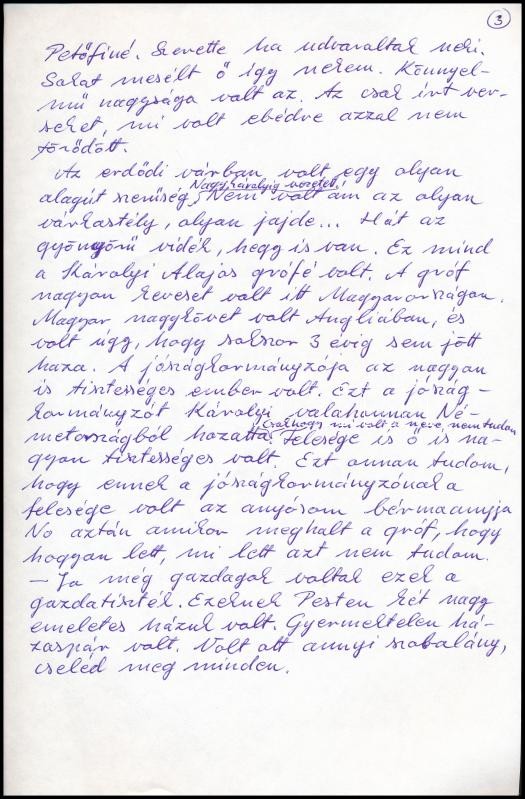 3
Petőfiné. Szerette ha udvaroltak neki.
Sokat mesélt ő így nekem. Könnyel-
mű nagysága volt az. Az csak írt ver-
seket, mi volt ebédre azzal nem
törődött.
Az erdődi várban volt egy olyan
alagút szerűség, Nagykárolyig vezetett. Nem volt ám az olyan
várkastély, olyan jajde... Hát az
gyönyörű vidék, hegy is van. Ez mind
a Károlyi Alajos grófé volt. A gróf
nagyon keveset volt itt Magyarországon.
Magyar nagykövet volt Angliában, és
volt úgy, hogy sokszor 3 évig sem jött
haza. A jószágkormányzója az nagyon
is tisztességes ember volt. Ezt a jószág-
kormányzót Károlyi valahonnan Né-
metországból hozatta. Csakhogy mi volt a neve, nem tudom
Felesége is ő is na-
gyon tisztességes volt. Ezt onnan tudom,
hogy ennek a jószágkormányzónak a
felesége volt az anyósom bérmaanyja
No aztán amikor meghalt a gróf, hogy
hogyan lett, mi lett azt nem tudom.
– Ja még gazdagok voltak ezek a
gazdatisztek. Ezeknek Pesten két nagy
emeletes házuk volt. Gyermektelen há-
zaspár volt. Volt ott annyi szobalány,
cseléd meg minden.